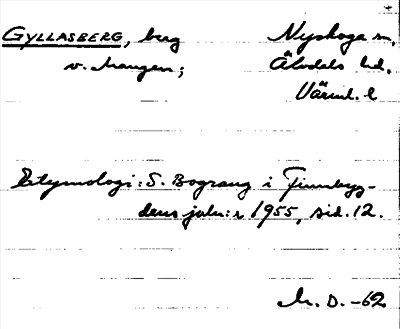 GYLLASBERG, berg Nyskoga sn,
v. Mangen; Älvdals hd,
Värml. l
Etymologi: S. Bograng i Finnbyg-
dens julnr 1955, sid. 12.
M. D. -62